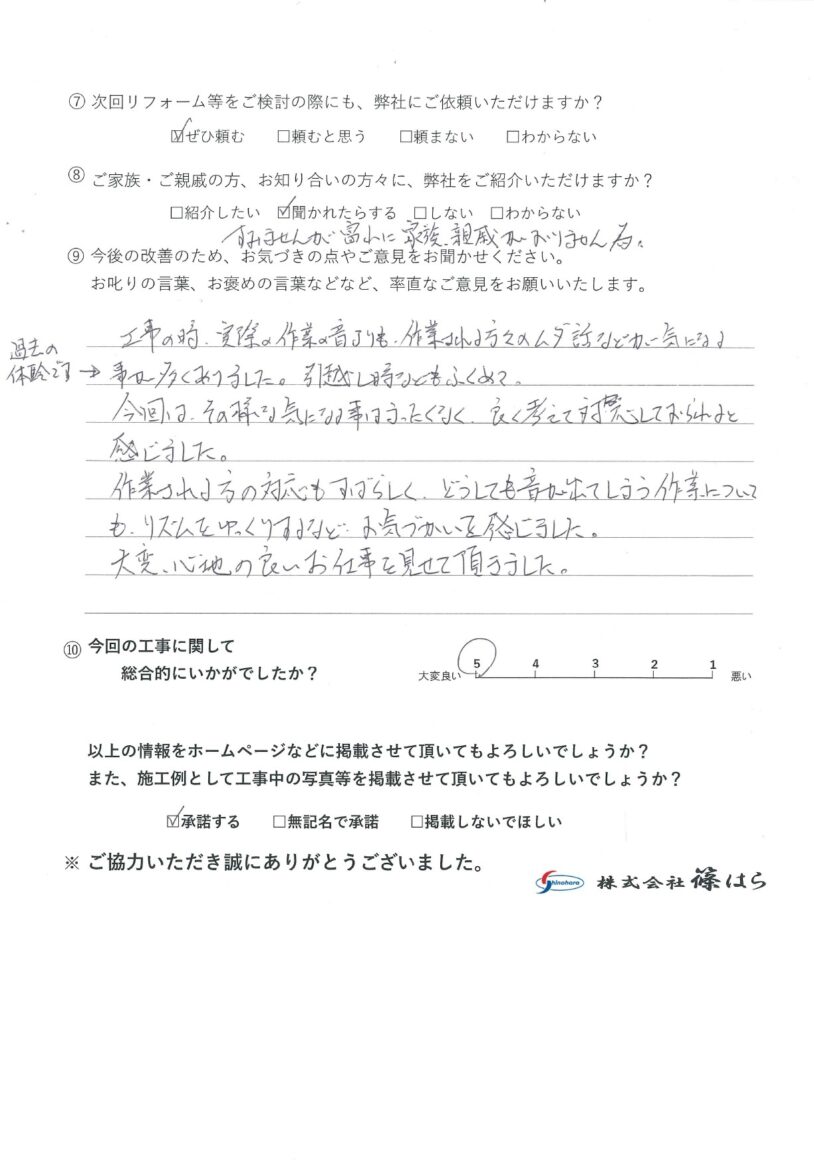 ⑦ 次回リフォーム等をご検討の際にも、弊社にご依頼いただけますか?
☑ぜひ頼む □頼むと思う □頼まない □わからない
⑧ ご家族・ご親戚の方、お知り合いの方々に、弊社をご紹介いただけますか?
□紹介したい ☑聞かれたらする □しない □わからない
すみませんが 家族、親戚がおりません為。
⑨ 今後の改善のため、お気づきの点やご意見をお聞かせください。
お叱りの言葉、お褒めの言葉などなど、率直なご意見をお願いいたします。
工事の時、実際の作業の音よりも、作業される方々のムダ話などが気になる
過去の
体験です→
事が多くありました。引越し時などもふくめて。
今回は、その様な気になる事はまったくなく、良く考えて対応しておられると
感じました。
作業される方の対応もすばらしく、どうしても音が出てしまう作業について
も、リズムをゆっくりするなど、お気づかいを感じました。
大変、心地の良いお仕事を見せて頂きました。
⑩ 今回の工事に関して
総合的にいかがでしたか?
大変良い 5 4 3 2 1 悪い
以上の情報をホームページなどに掲載させて頂いてもよろしいでしょうか?
また、施工例として工事中の写真等を掲載させて頂いてもよろしいでしょうか?
☑承諾する □無記名で承諾 □掲載しないでほしい
※ ご協力いただき誠にありがとうございました。
Shinohara 株式会社 篠はら